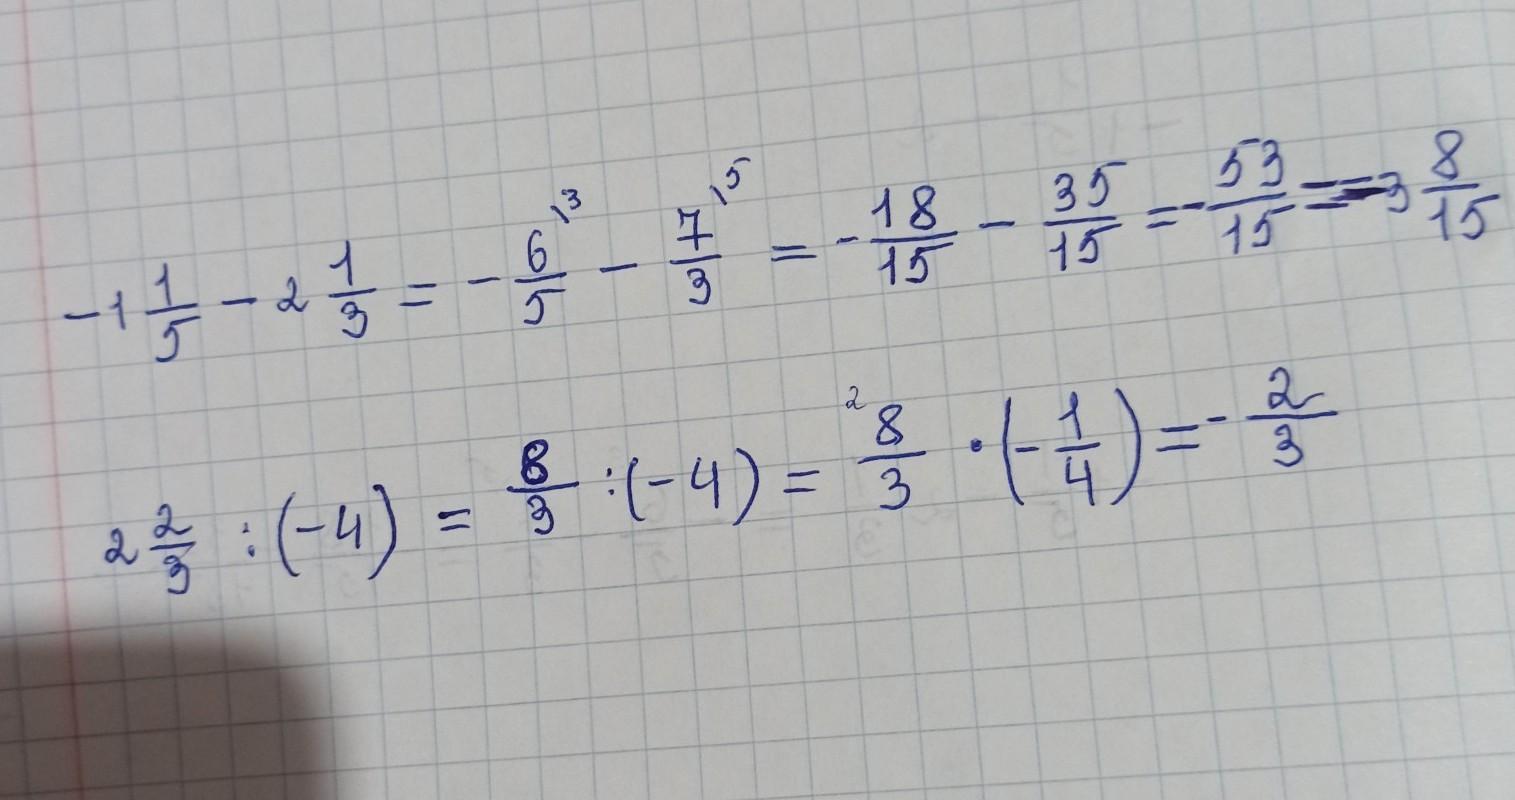 -1 1/5 - 2 1/3 = - 6/5 \3 - 7/3 \5 = - 18/15 - 35/15 = - 53/15 = -3 8/15
2 2/3 : (-4) = 8/3 : (-4) = 2 8/3 · (- 1/4) = - 2/3